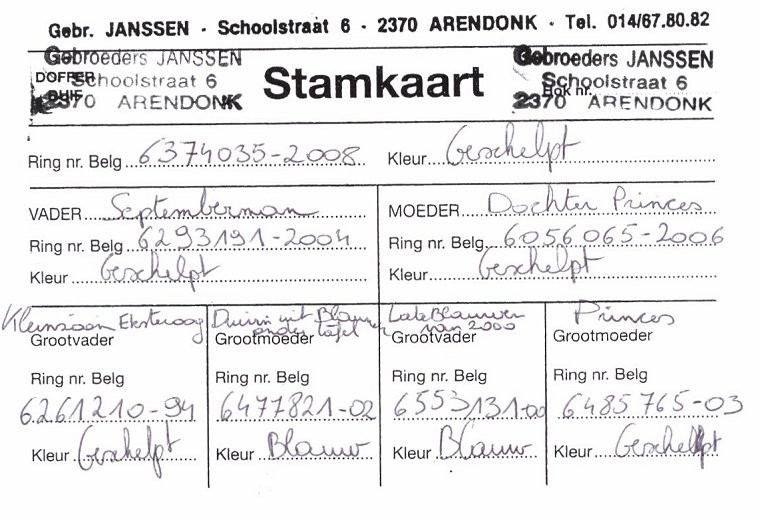 Gebr. JANSSEN - Schoolstraat 6 - 2370 ARENDONK - Tel. 014/67.80.82
Gebroeders JANSSEN
Schoolstraat 6
2370 ARENDONK
DOFFER
DUIF
Stamkaart
Gebroeders JANSSEN
Schoolstraat 6
2370 ARENDONK
Hok nr.
Ring nr. Belg 6374035-2008 Kleur Geschelpt
VADER Septemberman
Ring nr. Belg 6293191-2004
Kleur Geschelpt
MOEDER Dochter Princes
Ring nr. Belg 6056065-2006
Kleur Geschelpt
Kleinzoon Eksteroog
Grootvader
Ring nr. Belg
6261210-94
Kleur Geschelpt
Duivin uit Blauwe
onder tafel
Grootmoeder
Ring nr. Belg
6477821-02
Kleur Blauw
Late Blauwen
van 2000
Grootvader
Ring nr. Belg
6553131-00
Kleur Blauw
Princes
Grootmoeder
Ring nr. Belg
6485765-03
Kleur Geschelpt